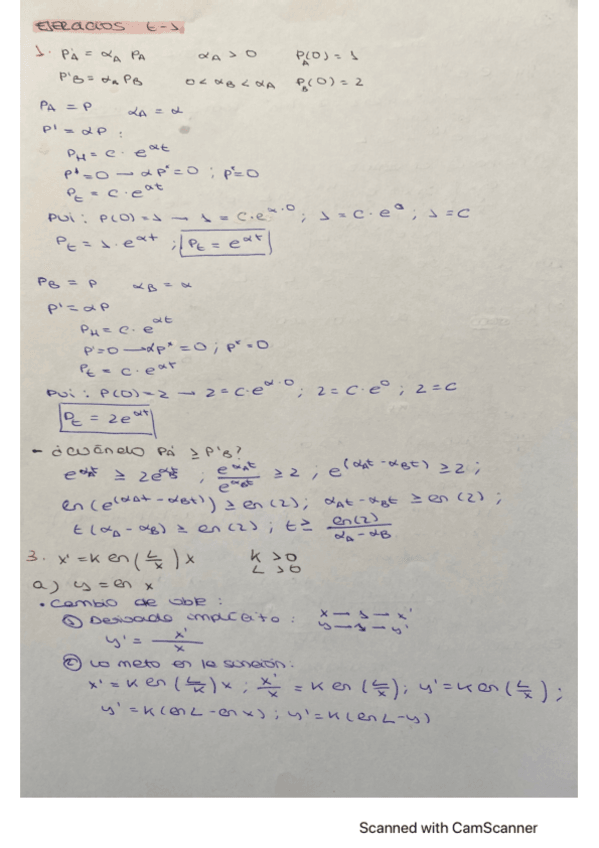 EJERCICIOS t-1
1. P'A = αA PA   αA > 0   PA(0) = 1
P'B = αA PB   0 < αB < αA   PB(0) = 2
PA = P   αA = α
P' = αP :
PH = C · e^αt
P' = 0 → αP* = 0 ; P* = 0
Pt = C · e^αt
PVI : P(0) = 1 → 1 = C · e^α·0 ; 1 = C · e^0 ; 1 = C
Pt = 1 · e^αt ; Pt = e^αt
PB = P   αB = α
P' = αP
PH = C · e^αt
P' = 0 → αP* = 0 ; P* = 0
Pt = C · e^αt
PVI : P(0) = 2 → 2 = C · e^α·0 ; 2 = C · e^0 ; 2 = C
Pt = 2e^αt
- ¿CUÁNDO P'A ≥ P'B?
e^αAt ≥ 2e^αBt ; e^αAt / e^αBt ≥ 2 ; e^(αAt - αBt) ≥ 2 ;
ln(e^(αAt - αBt)) ≥ ln(2) ; αAt - αBt ≥ ln(2) ;
t(αA - αB) ≥ ln(2) ; t ≥ ln(2) / αA - αB
3. x' = K ln(L/x) x   K > 0
L > 0
a) y = ln x
• Cambio de vble :
① Derivada implícita :   x → 1 → x'
y → 1 → y'
y' = x'/x
② Lo meto en la función :
x' = K ln(L/K) x ; x'/x = K ln(L/x) ; y' = K ln(L/x) ;
y' = K(ln L - ln x) ; y' = K(ln L - y)
Scanned with CamScanner